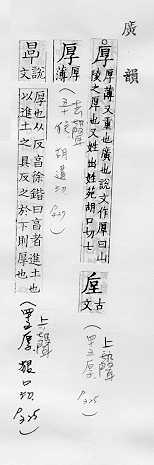 廣韻
厚 厚薄又重也廣也說文作㫗曰山陵之厚也又姓出姓苑胡口切七
垕 古文
(上聲 四五厚 P.325)
厚 厚薄
(去聲 五十候 胡遘切 P.439)
㫗 說文
厚也从反亯徐鍇曰亯者進土也以進土之具反之於下則厚也
(上聲 四五厚 狠口切 P.325)